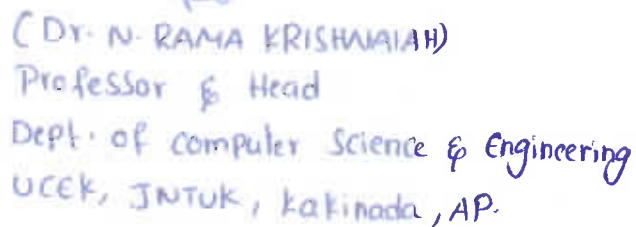 (Dr. N. RAMA KRISHNAIAH)
Professor & Head
Dept. of computer Science & Engineering
UCEK, JNTUK, Kakinada, AP.